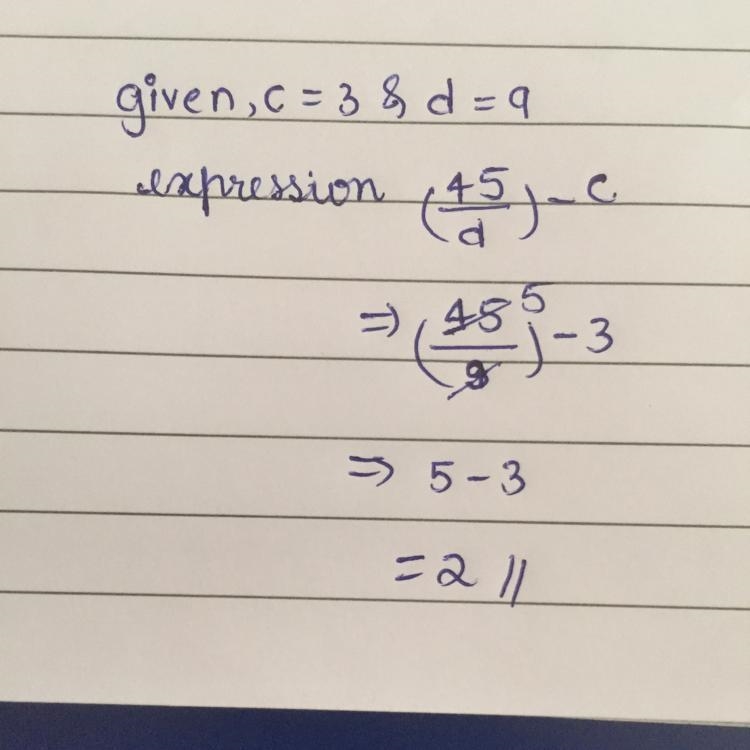 given, c = 3 & d = 9
expression (45/d) - c
⇒ (45/9) 5 - 3
⇒ 5 - 3
= 2 //